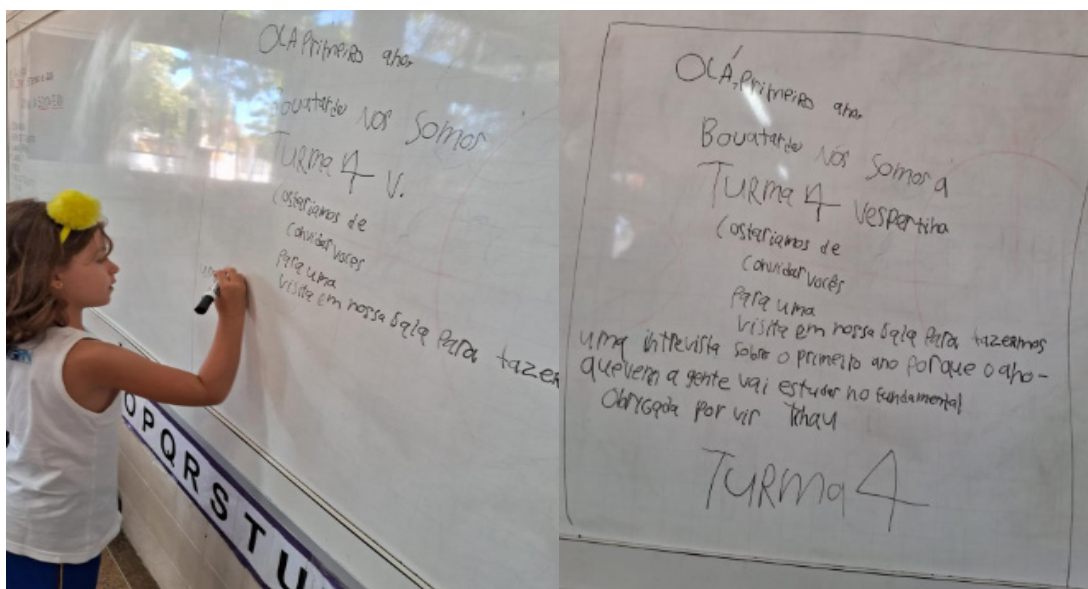 OLA Primeiro ano,
Bouatarde Nós somos
TURma 4 V.
Costariamos de
convidar voces
Para uma
visita em nossa sala Para fazer
O P Q R S T U
OLÁ, Primeiro ano,
Bouatarde Nós somos a
TURma 4 vespertina
Costariamos de
convidar vocês
Para uma
visita em nossa sala Para fazermos
uma intrevista sobre o primeiro ano Porque o ano -
quevem a gente vai estudar no fundamental
Obrigada por vir tchau
TURma 4